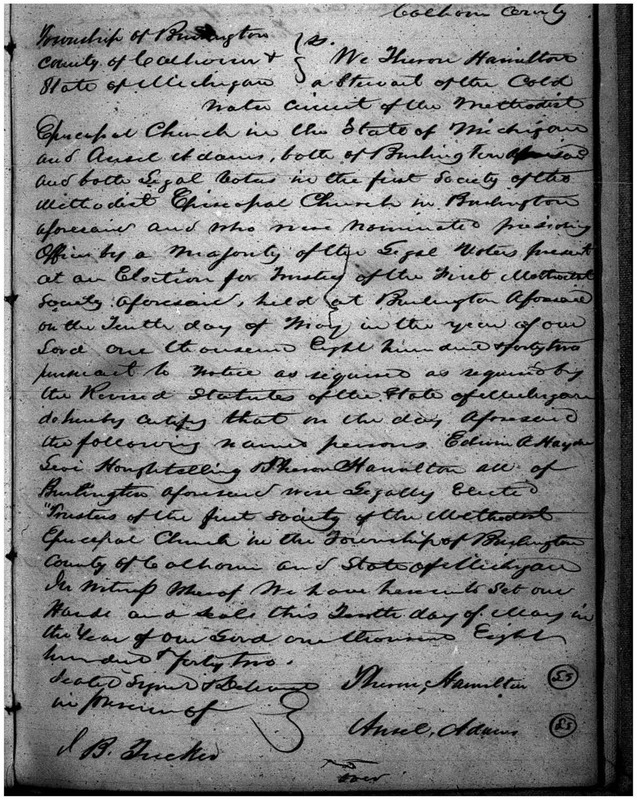 Calhoun County
Township of Burlington
County of Calhoun & } ss. We Theron Hamilton
State of Michigan a Stewart of the Cold
Water Circuit of the Methodist
Episcopal Church in the State of Michigan
and Ansel Adams, both of Burlington Aforesaid
and both Legal Voters in the first Society of the
Methodist Episcopal Church in Burlington
aforesaid and who were nominated presiding
Officers by a Majority of the Legal Voters present
at an Election for Trustees of the First Methodist
Society aforesaid, held at Burlington Aforesaid
on the Tenth day of May in the year of our
Lord one thousand Eight hundred & forty two
pursuant to Notice as required as required by
the Revised Statutes of the State of Michigan
do hereby certify that on the day Aforesaid
the following named persons Edwin A Hayden
Levi Houghtelling & Theron Hamilton all of
Burlington aforesaid were Legally Elected
"Trustees of the first Society of the Methodist
Episcopal Church in the Township of Burlington
County of Calhoun and State of Michigan
In Witness Whereof We have hereunto Set our
Hands and Seals this Tenth day of May in
the Year of our Lord one thousand Eight
hundred & forty two.
Sealed Signed & Delivered } Theron, Hamilton LS
in presence of
Ansel, Adams LS
B. Tucker
over